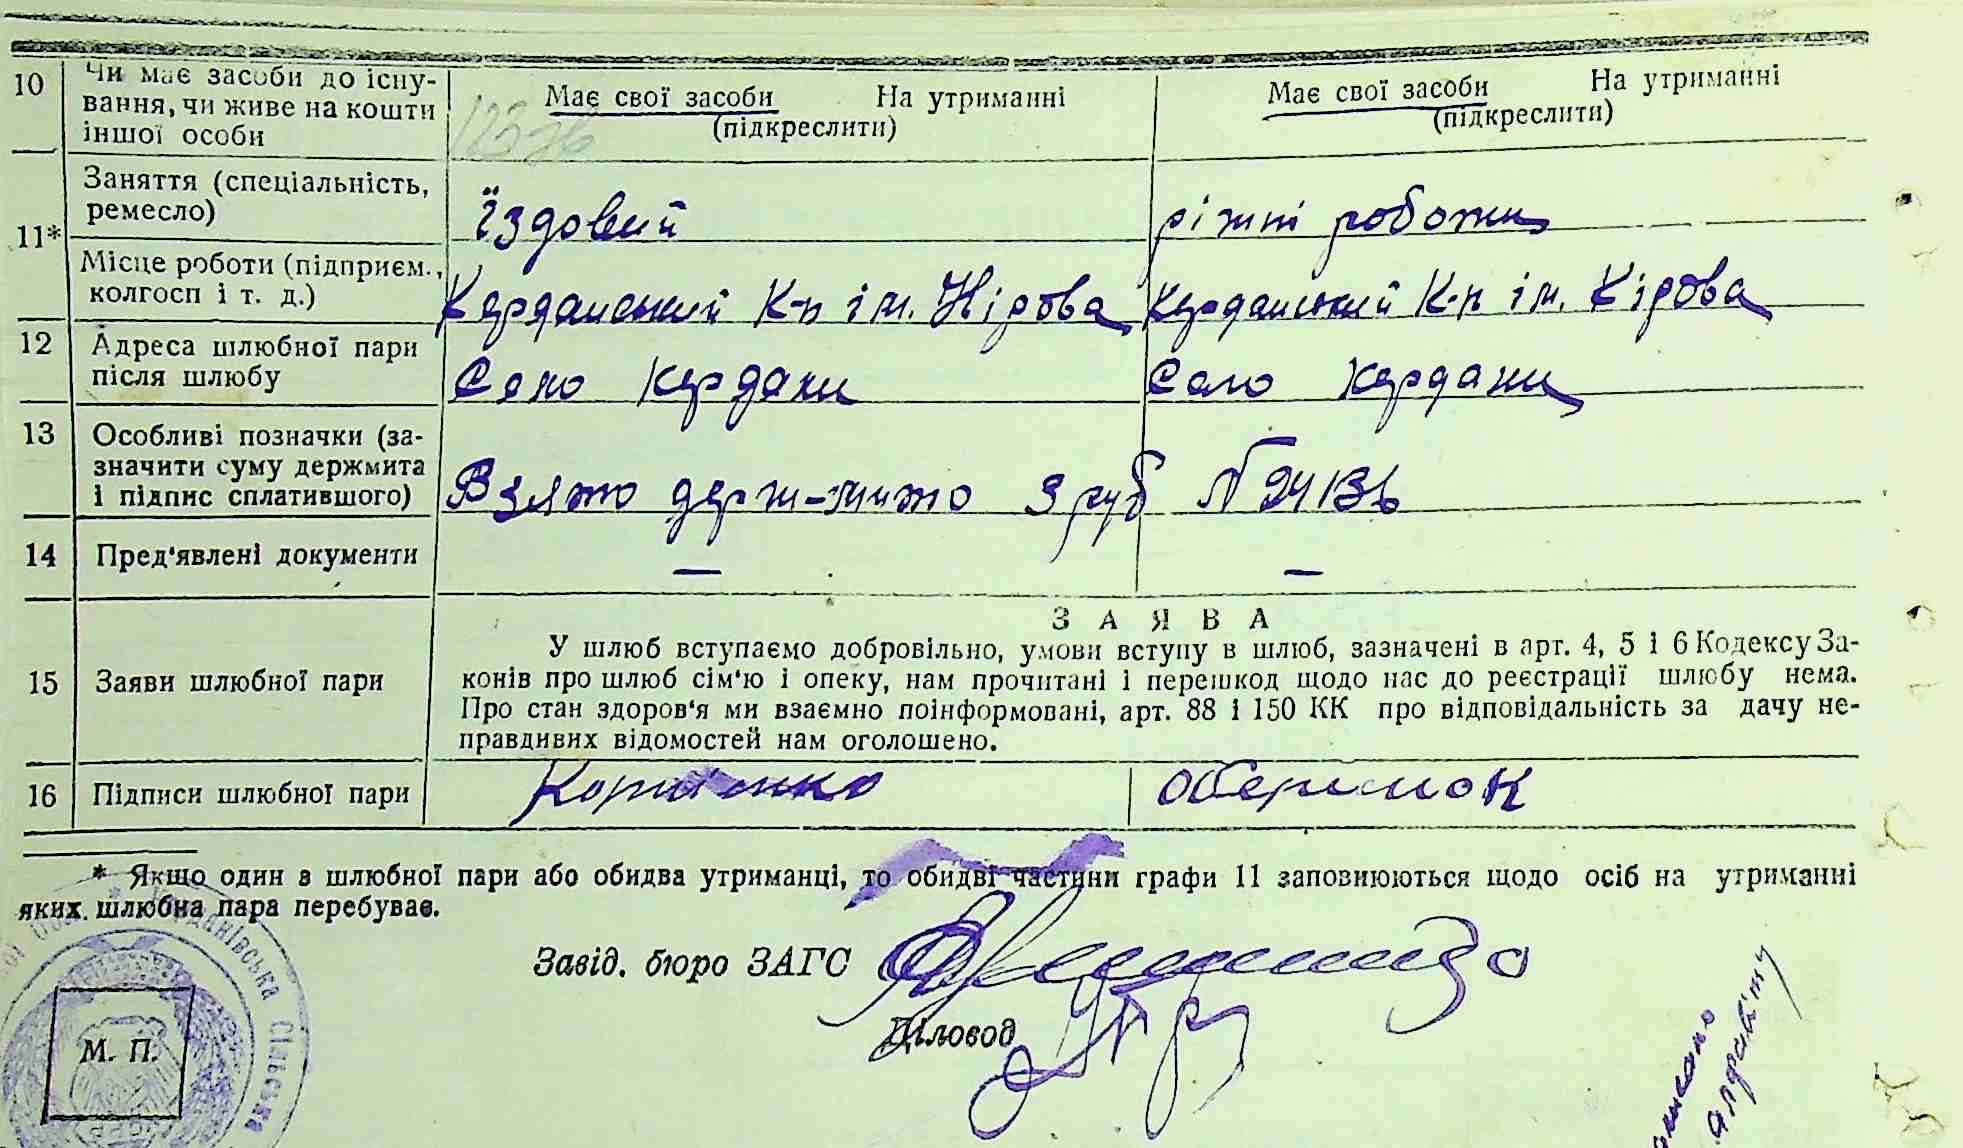 10 Чи має засоби до існу-
вання, чи живе на кошти
іншої особи
Має свої засоби На утриманні
(підкреслити)
Має свої засоби На утриманні
(підкреслити)
11*
Заняття (спеціальність,
ремесло)
їздовий
ріжні роботи
Місце роботи (підприєм.,
колгосп і т. д.)
Керданський К-п ім. Кірова
Керданський К-п ім. Кірова
12 Адреса шлюбної пари
після шлюбу
Село Кердани
Село Кердани
13 Особливі позначки (за-
значити суму держмита
і підпис сплатившого)
Взято держ-мито 3 руб N 94136
14 Пред'явлені документи
— —
15 Заяви шлюбної пари
ЗАЯВА
У шлюб вступаємо добровільно, умови вступу в шлюб, зазначені в арт. 4, 5 і 6 Кодексу За-
конів про шлюб сім'ю і опеку, нам прочитані і перешкод щодо нас до реєстрації шлюбу нема.
Про стан здоров'я ми взаємно поінформовані, арт. 88 і 150 КК про відповідальність за дачу не-
правдивих відомостей нам оголошено.
16 Підписи шлюбної пари
Корнієнко
* Якщо один з шлюбної пари або обидва утриманці, то обидві частини графи 11 заповнюються щодо осіб на утриманні
яких шлюбна пара перебуває.
Завід. бюро ЗАГС
Діловод
М. П.
Сільська